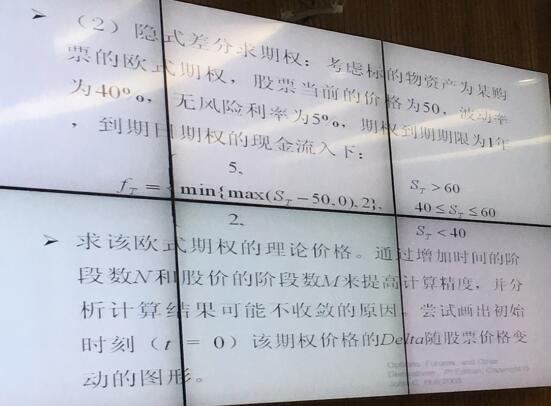 ➢ （2）隐式差分求期权：考虑标的物资产为某购
票的欧式期权，股票当前的价格为50，波动率
为40%，无风险利率为5%，期权到期期限为1年
，到期日期权的现金流入下：
5, S_T > 60
f_T = { min{max(S_T − 50, 0), 2}, 40 ≤ S_T ≤ 60
2, S_T < 40
➢ 求该欧式期权的理论价格。通过增加时间的阶
段数N和股价的阶段数M来提高计算精度，并分
析计算结果可能不收敛的原因。尝试画出初始
时刻（t = 0）该期权价格的Delta随股票价格变
动的图形。
Options, Futures, and Other